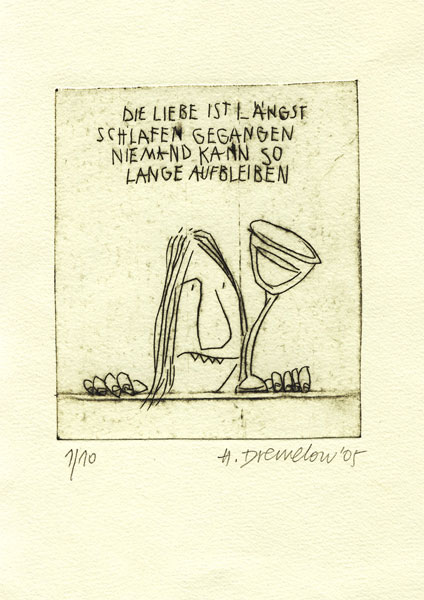 DIE LIEBE IST LÄNGST
SCHLAFEN GEGANGEN
NIEMAND KANN SO
LANGE AUFBLEIBEN
1/10
H. Dremelow '05